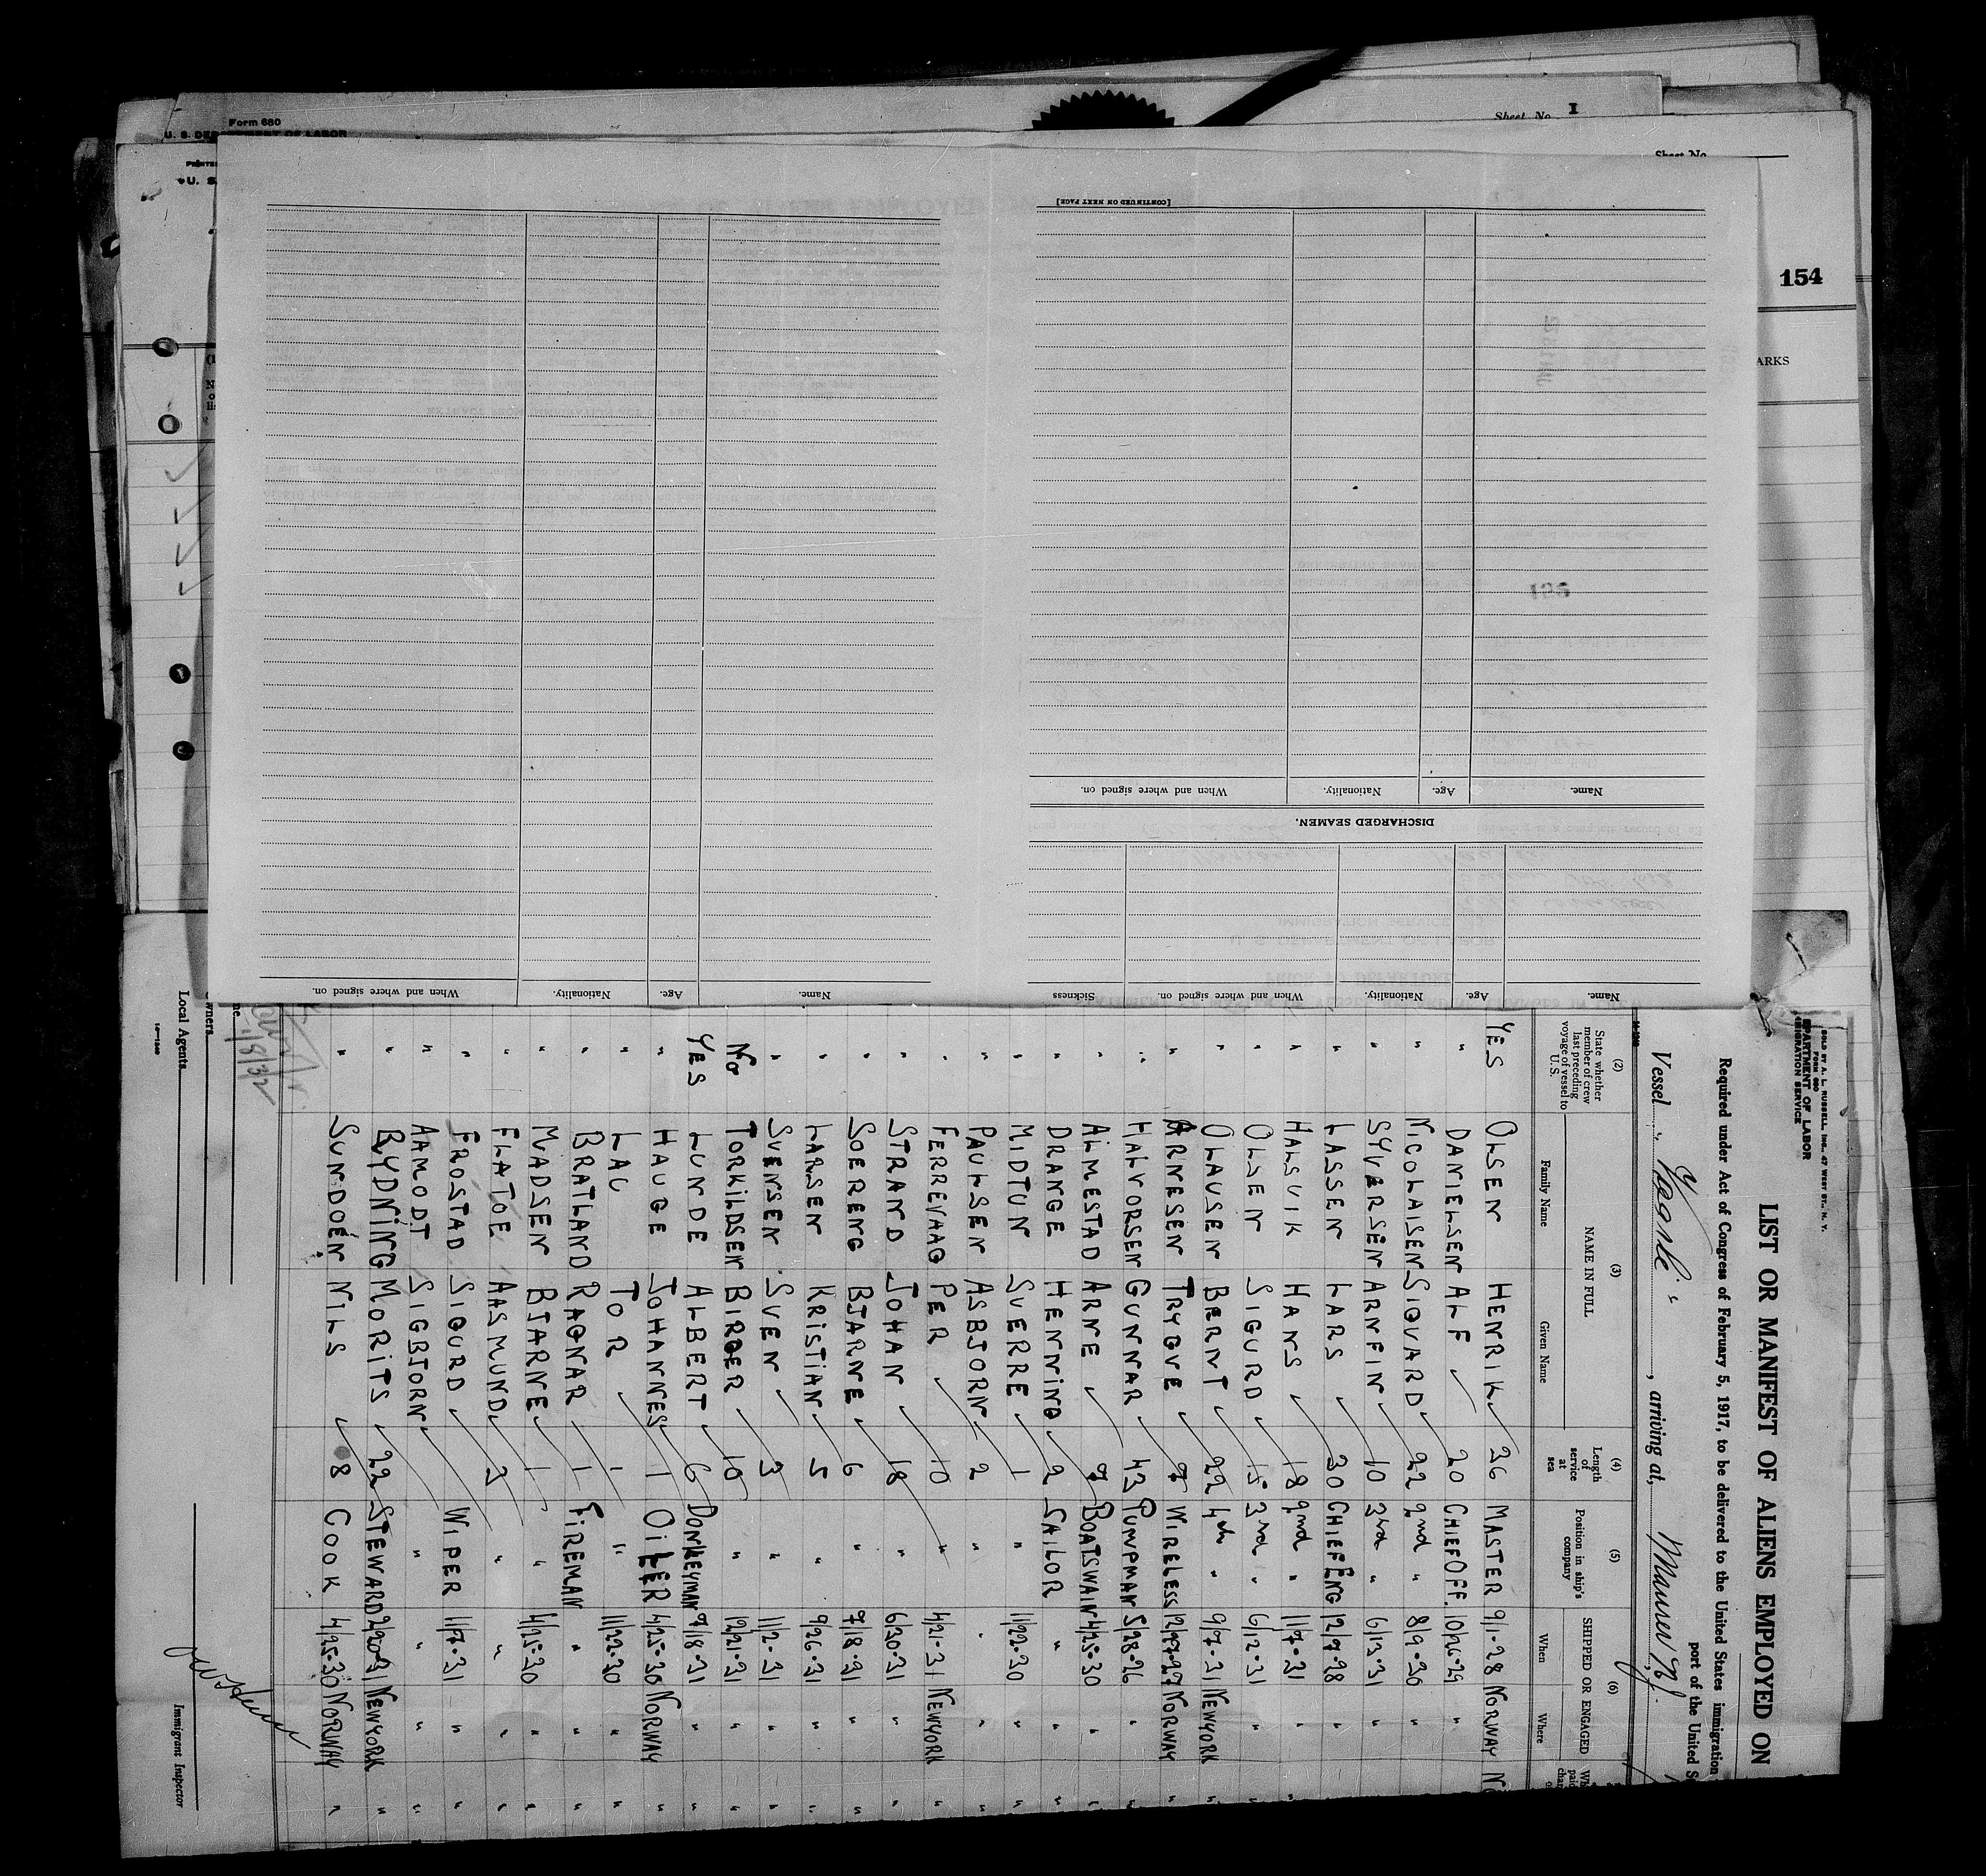 Form 680
Sheet No. 1
Sheet No.
154
ARKS
[CONTINUED ON NEXT PAGE]
Name. Age. Nationality. When and where signed on.
DISCHARGED SEAMEN.
Name. Age. Nationality. When and where signed on. Sickness
Name. Age. Nationality. When and where signed on.
SOLD BY A. L. RUSSELL, INC., 47 WEST ST., N. Y.
FORM 680
DEPARTMENT OF LABOR
IMMIGRATION SERVICE
LIST OR MANIFEST OF ALIENS EMPLOYED ON
Required under Act of Congress of February 5, 1917, to be delivered to the United States immigration
port of the United S
Vessel , arriving at, Maurer N.J.
(2) (3) (4) (5) (6)
State whether member of crew last preceding voyage of vessel to U. S.
NAME IN FULL
Family Name Given Name
Length of service at sea
Position in ship's company
SHIPPED OR ENGAGED
When Where
YES OLSEN HENRIK 36 MASTER 9/1-28 NORWAY
" DANIELSEN ALF 20 CHIEF OFF. 10/26-29 "
" NICOLAISEN SIQVARD 22 2nd " 8/9-30 "
" SYVERSEN ARNFIN 10 3rd " 6/13-31 "
" LASSEN LARS 30 CHIEF ENG 12/7-28 "
" HALSVIK HANS 18 2nd " 11/7-31 "
" OLSEN SIGURD 15 3rd " 6/12-31 "
" OLAUSEN BERNT 22 4th " 9/7-31 NEWYORK
" ARNESEN TRYGVE 7 WIRELESS 12/27-27 NORWAY
" HALVORSEN GUNNAR 43 PUMPMAN 5/28-26 "
" ALMESTAD ARNE 7 BOATSWAIN 4/25-30 "
" DRANGE HENNING 2 SAILOR " "
" MIDTUN SVERRE 1 " 11/22-30 "
" PAULSEN ASBJORN 2 " " "
" FERREVAAG PER 10 " 4/21-31 NEWYORK
" STRAND JOHAN 18 " 6/30-31 "
" SOERENG BJARNE 6 " 7/18-31 "
" LARSEN KRISTIAN 5 " 9/26-31 "
" SVENSEN SVEN 3 " 11/2-31 "
NO TORKILDSEN BIRGER 10 " 12/21-31 "
YES LUNDE ALBERT 6 DONKEYMAN 7/18-31 "
" HAUGE JOHANNES 1 OILER 4/25-30 NORWAY
" LAU TOR 1 " 11/22-30 "
" BRATLAND RAGNAR 1 FIREMAN " "
" MADSEN BJARNE 1 " 4/25-30 "
" FLATOE AASMUND 3 " " "
" FROSTAD SIGURD WIPER 11/7-31 "
" AAMODT SIGBJORN " " "
" RYDNING MORITS 22 STEWARD NEWYORK
" SUNDOEN NILS 8 COOK 4/25-30 NORWAY
1/8/32
Owners.
Local Agents.
Immigrant Inspector